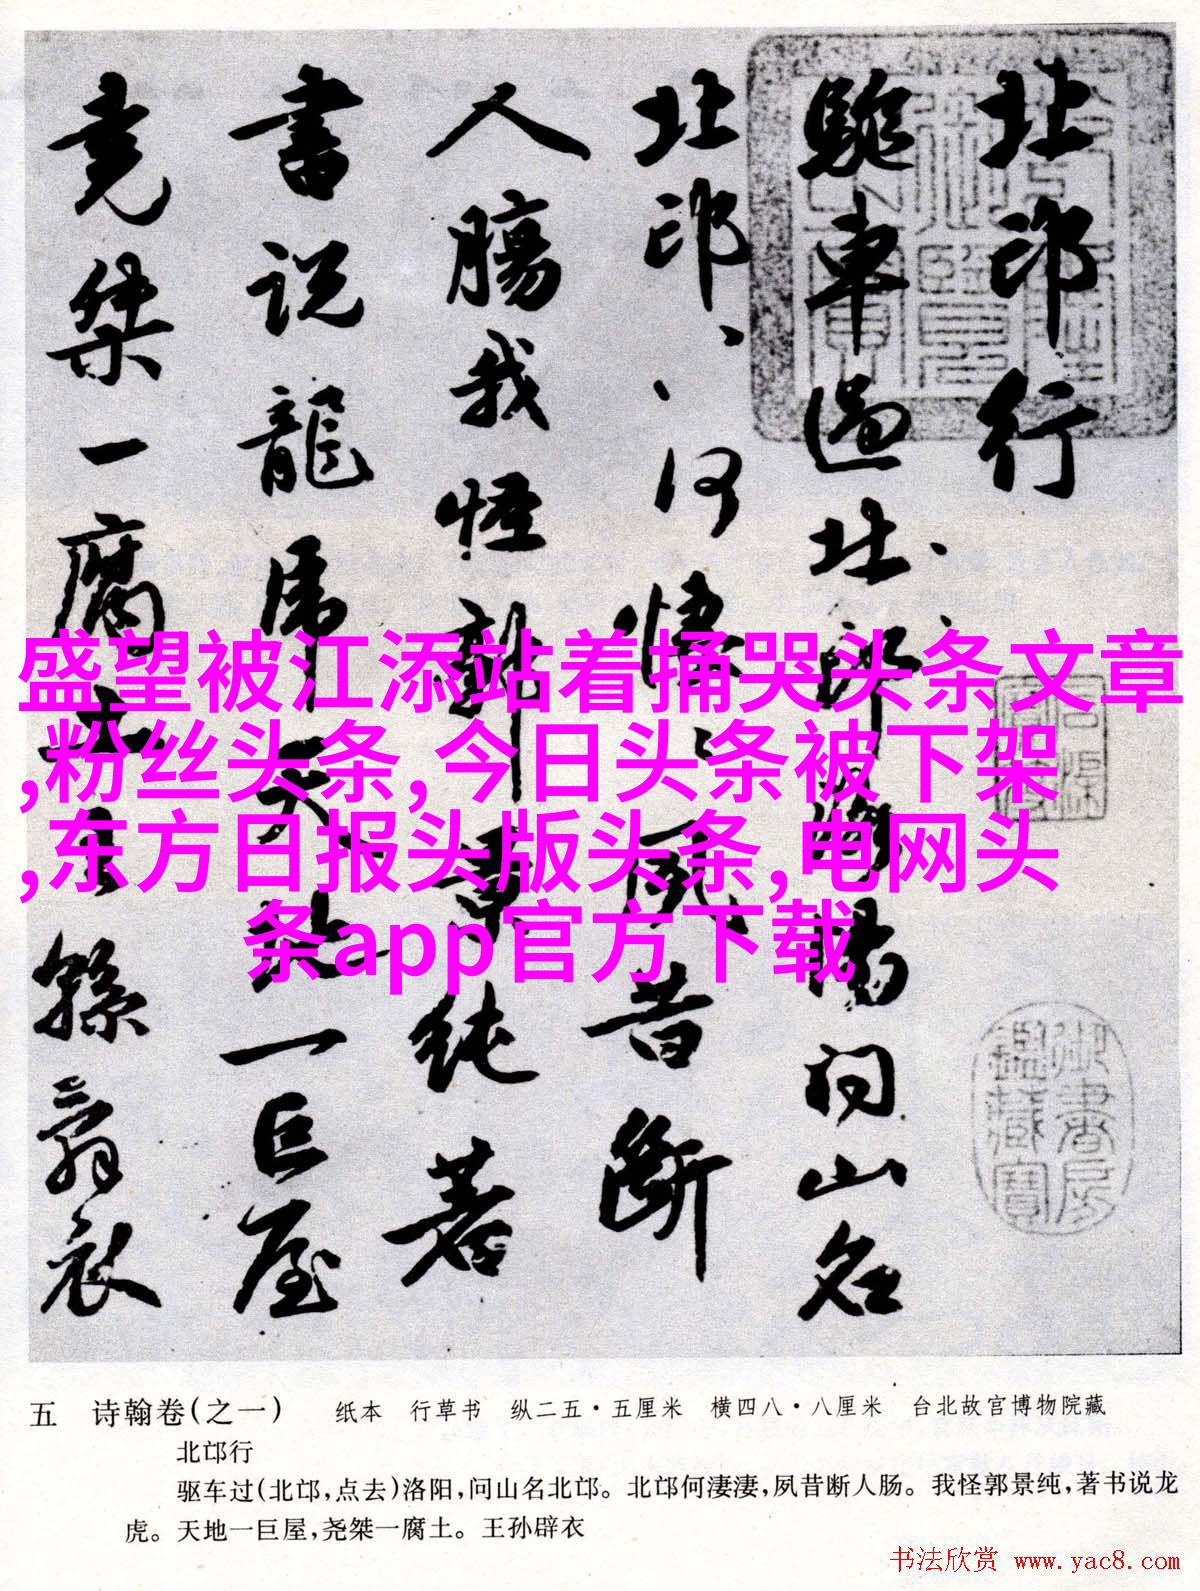 北邙行
驅車過北邙洛陽问山名
北邙何悽〻夙昔斷
人腸我怪郭景純著
書说龍虎天地一巨屋
尧桀一腐土王孫辟衣
御書房鑑藏寶
盛望被江添站着捅哭头条文章
,粉丝头条,今日头条被下架
,东方日报头版头条,电网头
条app官方下载
五 诗翰卷(之一) 纸本 行草书 纵二五·五厘米 横四八·八厘米 台北故宫博物院藏
北邙行
驱车过(北邙,点去)洛阳,问山名北邙。北邙何凄凄,夙昔断人肠。我怪郭景纯,著书说龙
虎。天地一巨屋,尧桀一腐土。王孙辟衣
书法欣赏 www.yac8.com